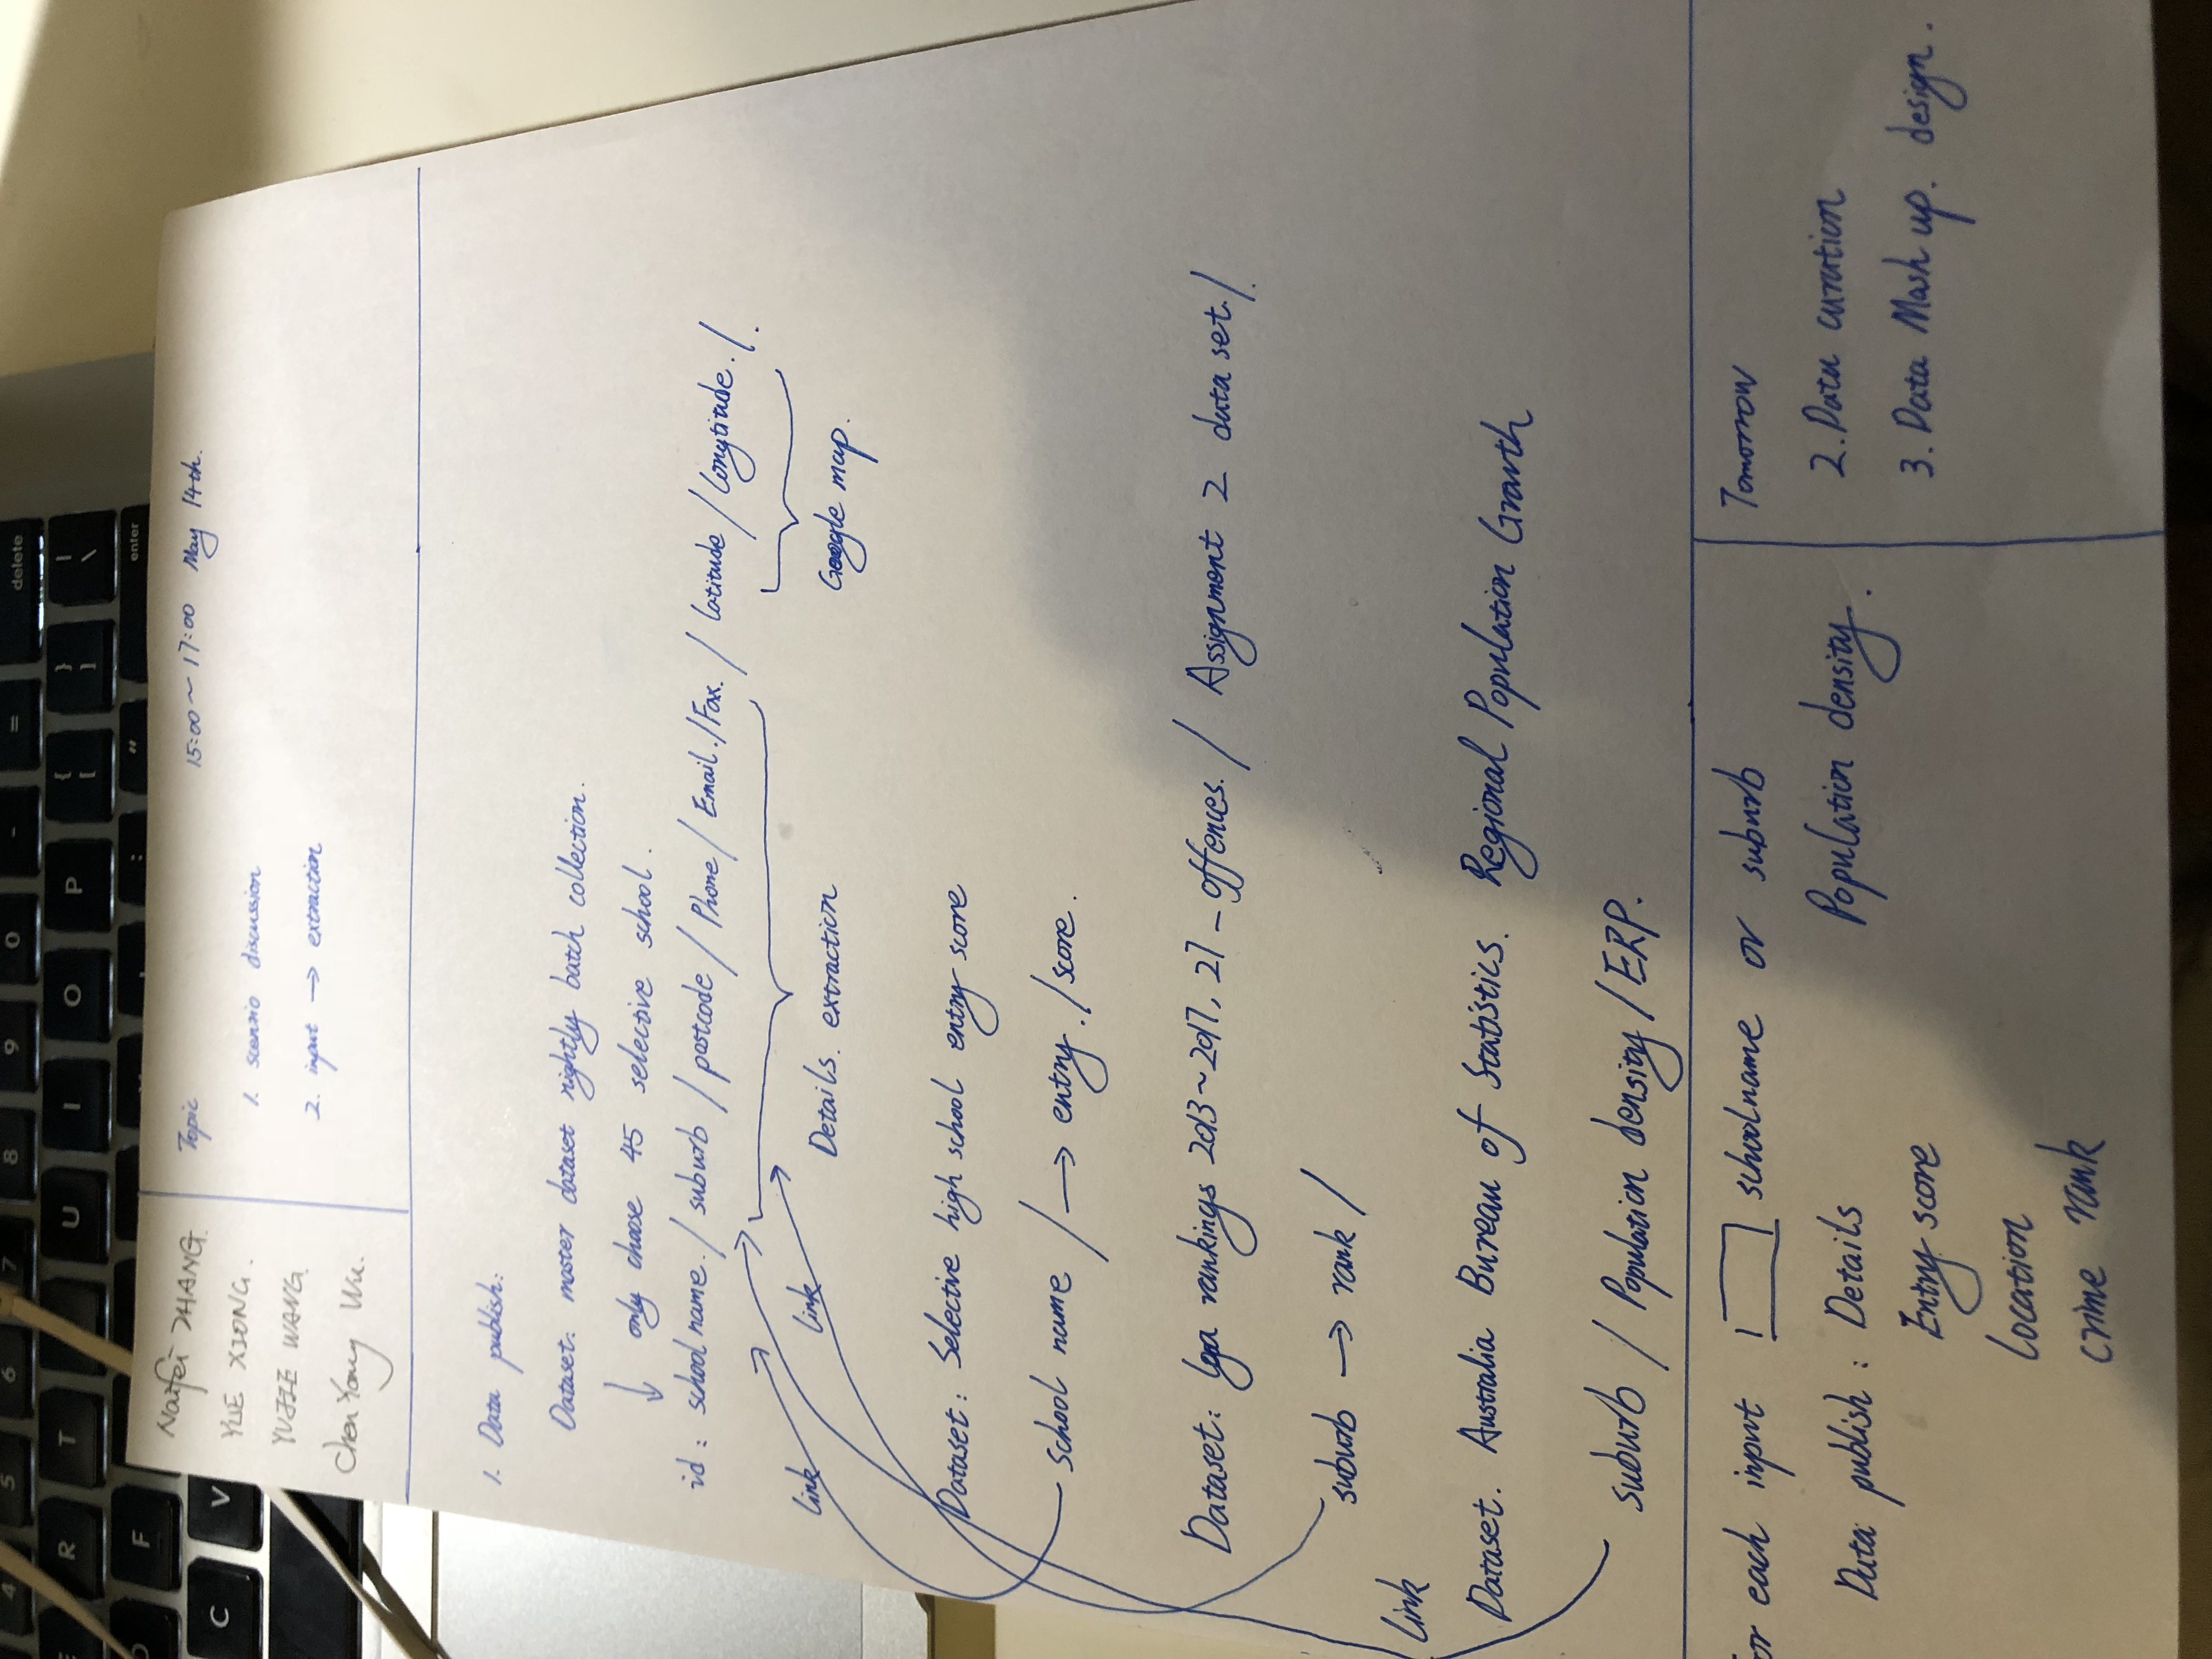 4 5 6 7 8 9 0 - = delete
E R T U I O P { [ } ] | \
D F : " enter
C V
Naifei ZHANG.
YUE XIONG.
YUJIE WANG.
ChenYang Wu.
Topic 15:00~17:00 May 14th.
1. scenrio discussion
2. input → extraction
1. Data publish:
Dataset: master dataset nightly batch collection.
↓ only choose 45 selective school.
id: school name. / suburb / postcode / Phone / Email. / Fax. / latitude / longtitude. /.
link link Details. extraction Google map.
Dataset: Selective high school entry score
school name / → entry. / score.
Dataset: lga rankings 2013~2017, 27_offences. / Assignment 2 data set. /.
suburb → rank /
link
Dataset. Australia Bureau of Statistics. Regional Population Growth
suburb / Population density / ERP.
or each input schoolname or suburb
Data publish: Details Population density.
Entry score
Location
crime rank
Tomorrow
2. Data curation
3. Data Mash up. design.